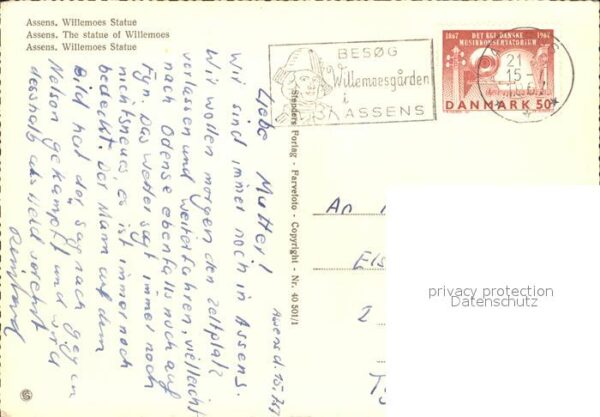 Assens, Willemoes Statue
Assens. The statue of Willemoes
Assens. Willemoes Statue
BESØG
Willemoesgården
i
ASSENS
1867 DET KGL DANSKE 1967
MUSIKKONSERVATORIUM
DANMARK 50
21
15-7
Stenders Forlag - Farvefoto - Copyright - Nr. 40 501/1
Assens d. 15.7.67
Liebe Mutter!
Wir sind immer noch in Assens.
Wir wollen morgen den Zeltplatz
verlassen und weiterfahren, vielleicht
nach Odense ebenfalls noch auf
Fyn. Das Wetter sagt immer noch
nichts neues es ist immer noch
bedeckt. Der Mann auf dem
Bild hat der Sag nach gegen
Nelson gekämpft und wird
desshalb als Held verehrt
An
2
privacy protection
Datenschutz